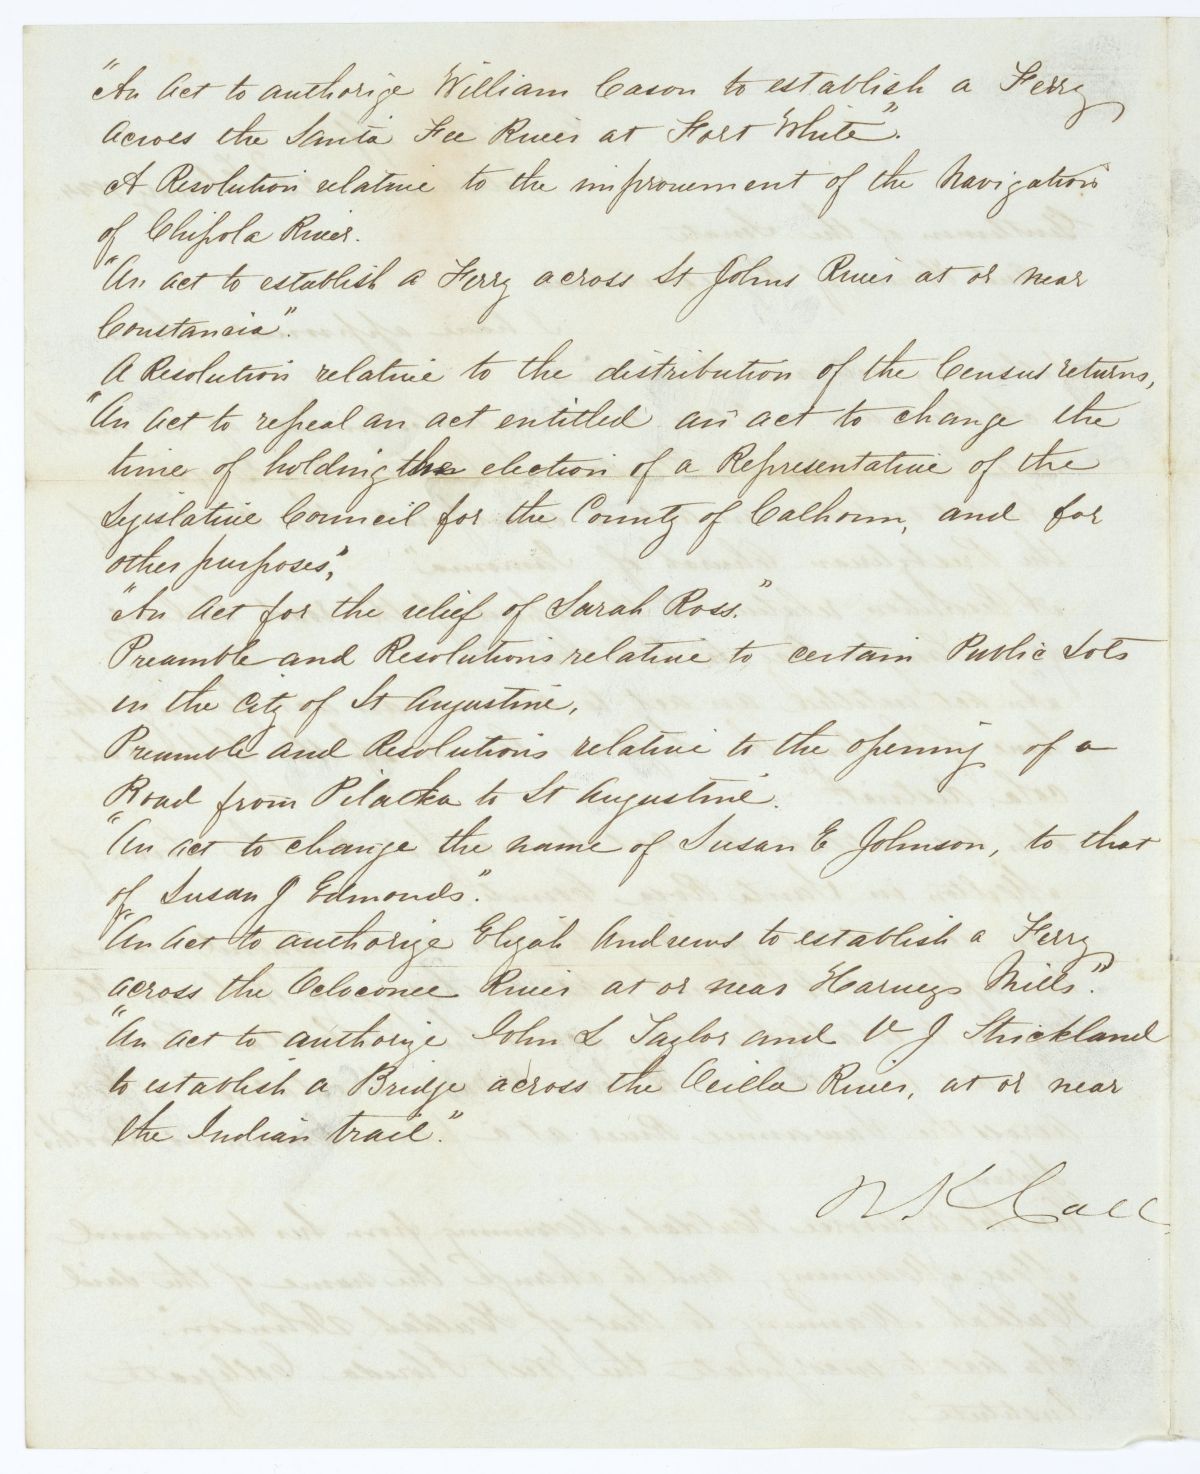 "An Act to authorize William Cason to establish a Ferry
across the Santa Fee River at Fort White".
A Resolution relative to the improvement of the Navigation
of Chipola River.
"An act to establish a Ferry across St Johns River at or near
Constancia".
A Resolution relative to the distribution of the Census returns,
"An Act to repeal an act entitled an act to change the
time of holding the election of a Representative of the
Legislative Council for the County of Calhoun, and for
other purposes",
"An Act for the relief of Sarah Ross."
Preamble and Resolutions relative to certain Public Lots
in the City of St Augustine,
Preamble and Resolutions relative to the opening of a
Road from Pilatka to St Augustine.
"An act to change the name of Susan E Johnson, to that
of Susan J Edmonds".
"An Act to authorize Elijah Andrews to establish a Ferry
across the Ocloconee River at or near Harveys Mills".
"An act to authorize John L Taylor and V J Strickland
to establish a Bridge across the Ocilla River, at or near
the Indian trail".
R K Call